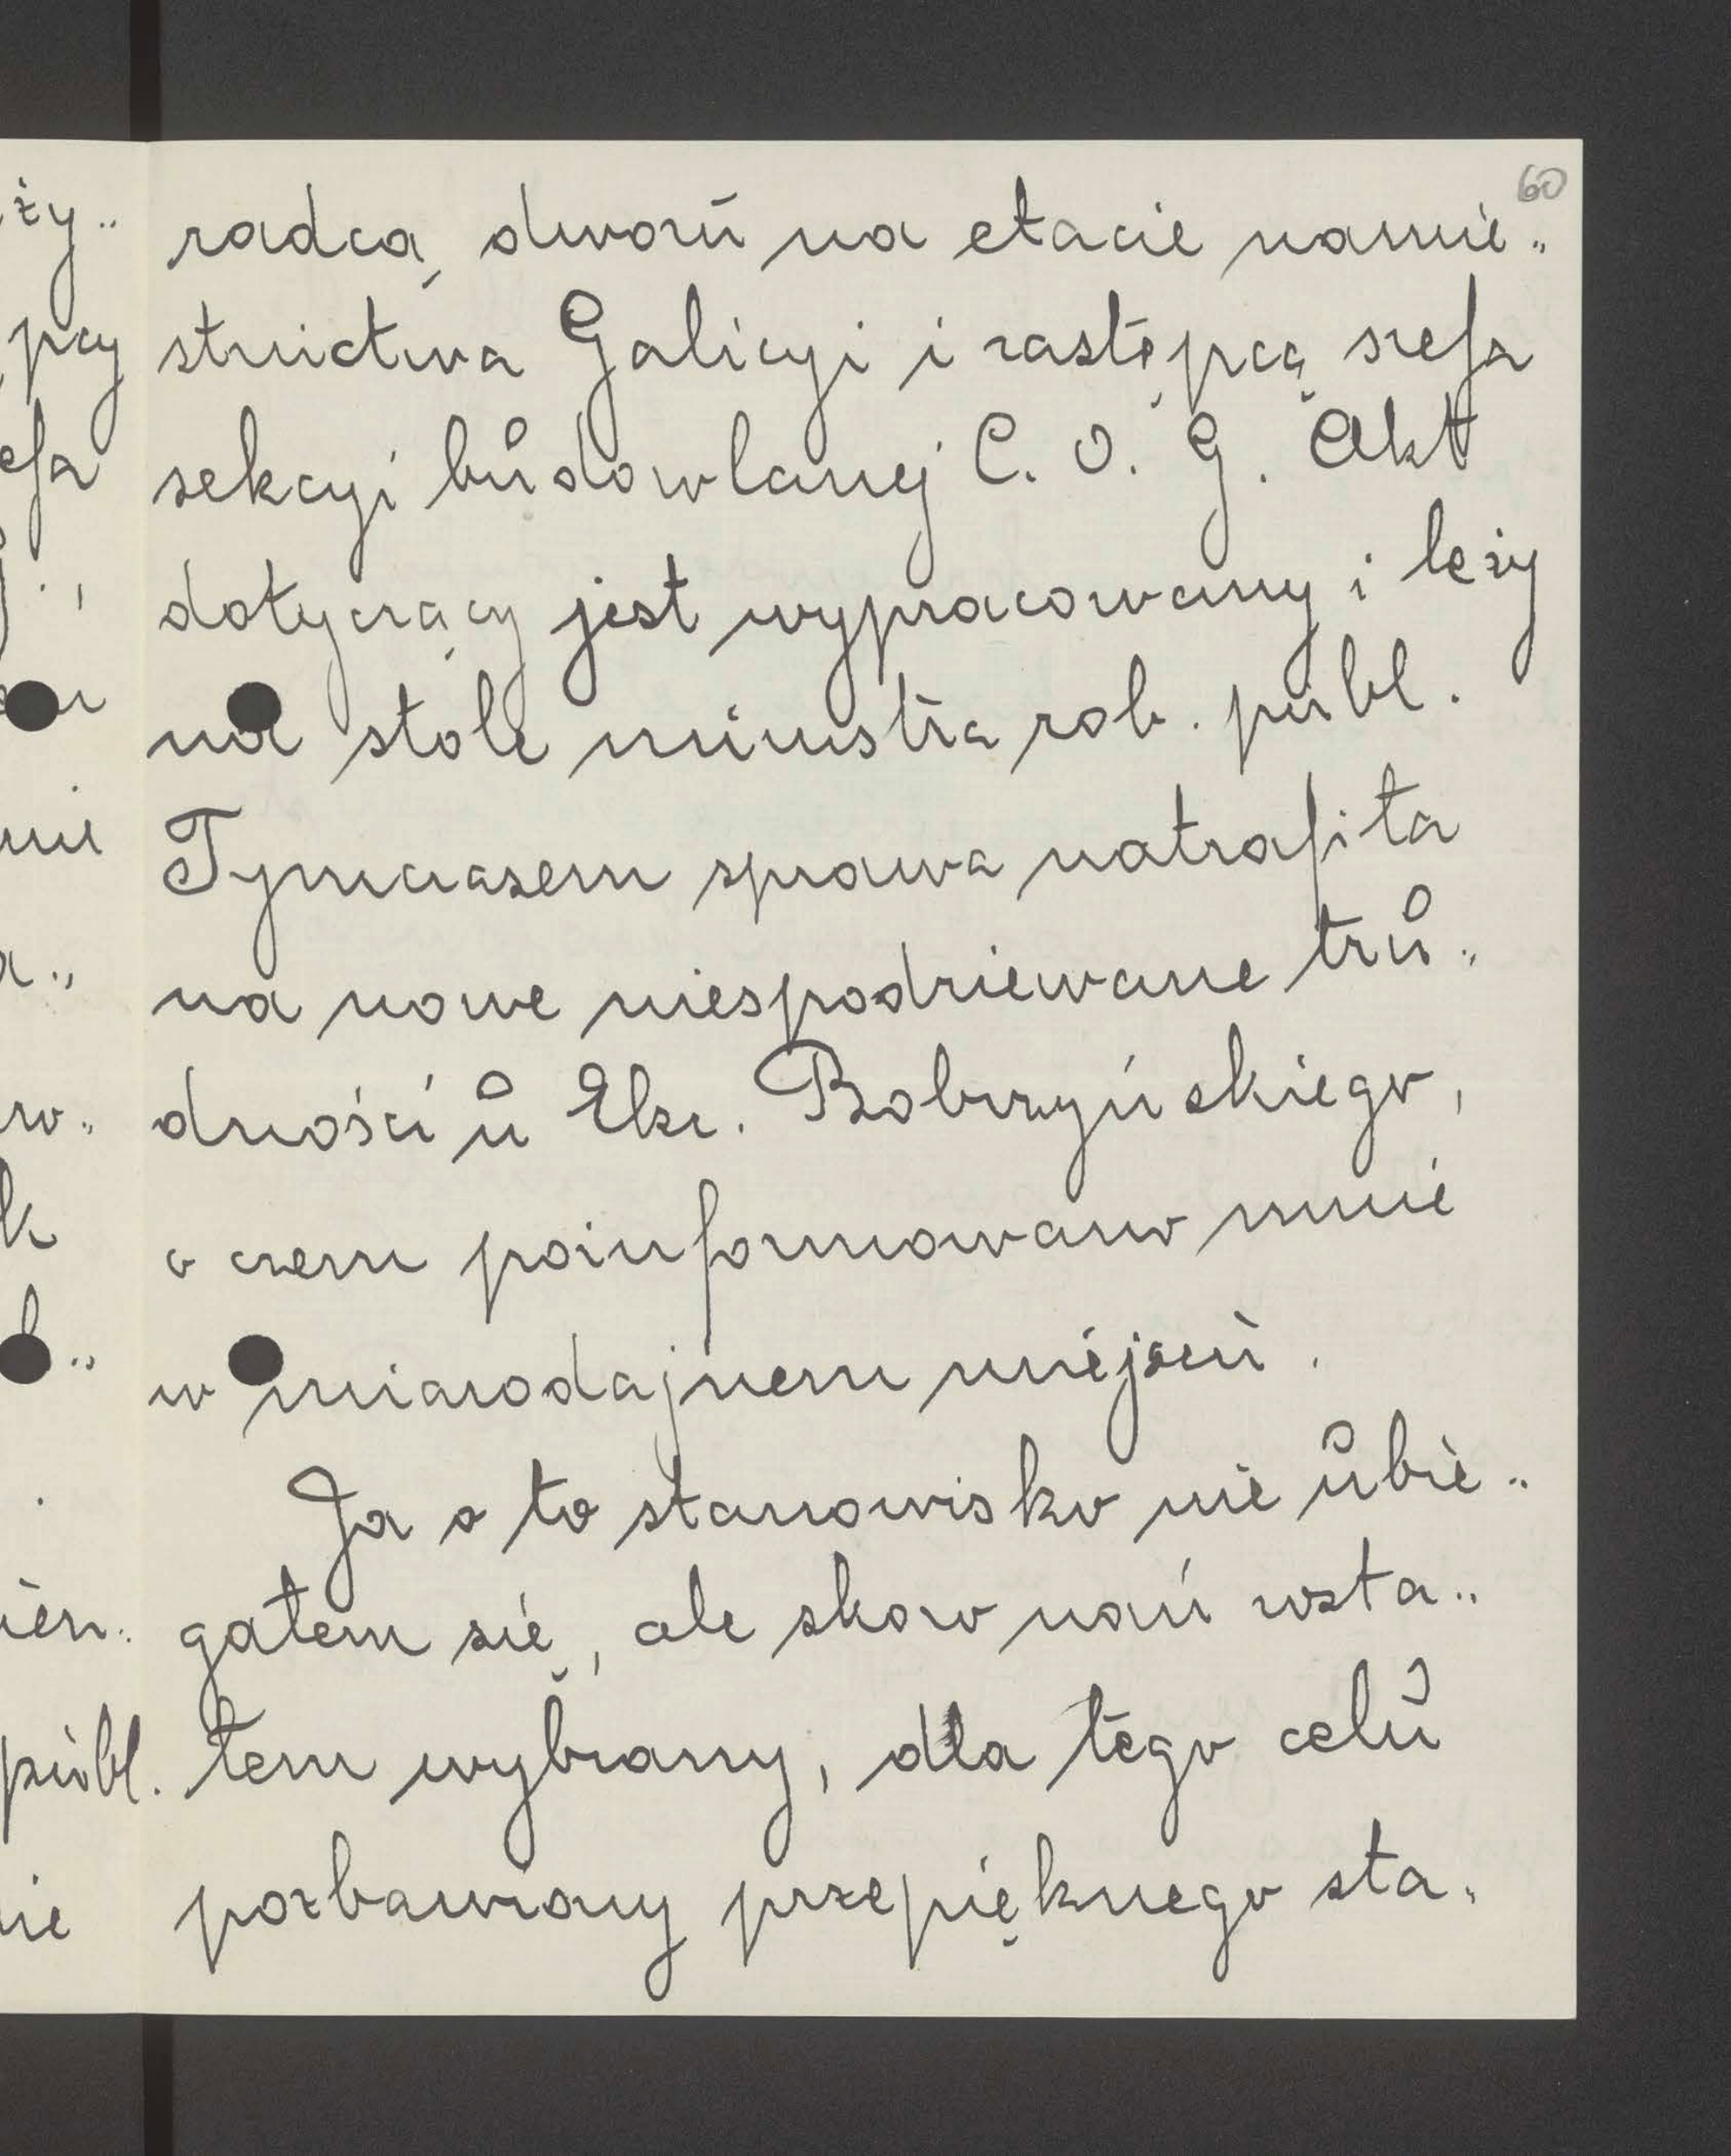 60
radcą dworu na etacie namie„
stnictwa Galicyi i zastępcą szefa
sekcyi budowlanej C. O. G. Akt
dotyczący jest wypracowany i leży
na stole ministra rob. publ.
Tymczasem sprawa natrafiła
na nowe niespodziewane tru„
dności u Eksc. Bobrzyńskiego,
o czem poinformowano mnie
w miarodajnem miejscu.
Ja o to stanowisko nie ubie„
gałem się, ale skoro nań zosta„
łem wybrany, dla tego celu
pozbawiony przepięknego sta„